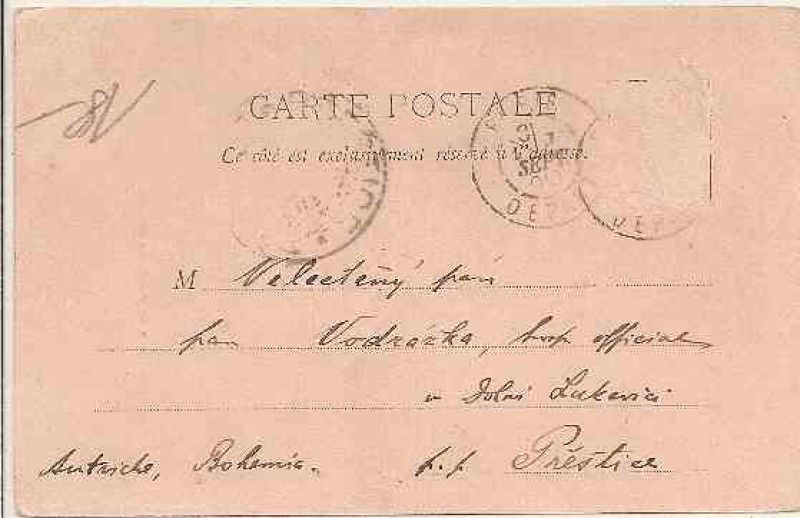 CARTE POSTALE
Ce côté est exclusivement réservé à l'adresse.
M Velectěný pán
pan Vodrážka, hosp. official
v Dolní Lukavici
Autriche, Bohemia. p. p. Přeštice
DEP
DEP